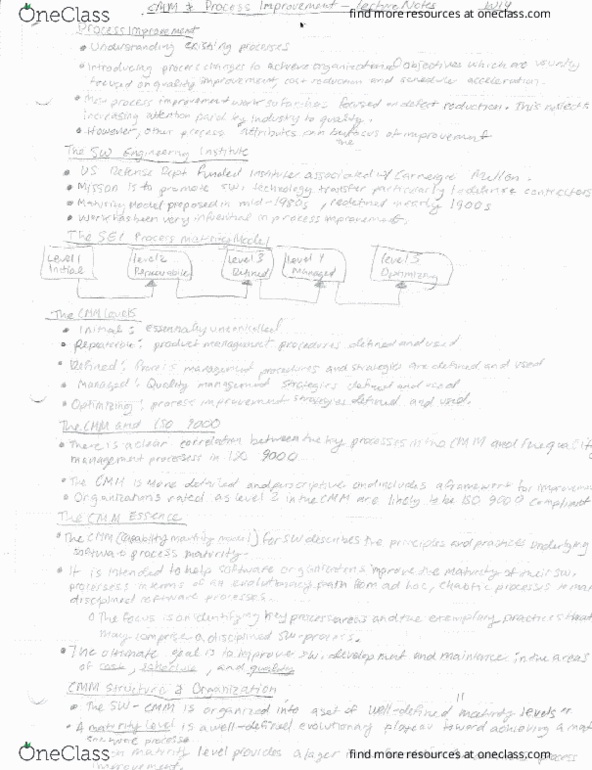 CMM & Process Improvement - Lecture Notes
OneClass
find more resources at oneclass.com
Process Improvement
• Understanding existing processes
• Introducing process changes to achieve organizational objectives which are usually
focused on quality improvement, cost reduction and schedule acceleration.
• process improvement work so far has focused on defect reduction. This reflects
increasing attention paid by industry to quality.
• However, other process attributes can be focus of improvement
the
The SW Engineering Institute
• US Defense Dept funded institute associated w/ Carnegie Mellon.
• Mission is to promote SW technology transfer particularly to defense contractors
• Maturity Model proposed in mid-1980s, redefined in early 1900s
• Work has been very influential in process improvement.
The SEI Process Maturity Model
Level 1 Level 2 Level 3 Level 4 Level 5
Initial Repeatable Defined Managed Optimizing
The CMM Levels
• Initial: essentially uncontrolled
• Repeatable: product management procedures defined and used
• Defined: Process management procedures and strategies are defined and used
• Managed: Quality management strategies defined and used
• Optimizing: process improvement strategies defined and used.
The CMM and ISO 9000
• There is a clear correlation between the key processes in the CMM and the quality
management processes in ISO 9000
• The CMM is more detailed and prescriptive and includes a framework for improvement
• Organizations rated as level 2 in the CMM are likely to be ISO 9000 compliant
The CMM Essence
• The CMM (capability maturity model) for SW describes the principles and practices underlying
software process maturity.
• It is intended to help software organizations improve the maturity of their SW
processes in terms of an evolutionary path from ad hoc, chaotic processes to
disciplined software processes.
o The focus is on identifying key process areas and the exemplary practices that
may comprise a disciplined SW process.
• The ultimate goal is to improve SW development and maintenance in the areas
of cost, schedule, and quality
CMM Structure & Organization
• The SW-CMM is organized into a set of well-defined "maturity levels"
• A maturity level is a well-defined evolutionary plateau toward achieving a
process
maturity level provides a layer in the process
OneClass
find more resources at oneclass.com
improvement.